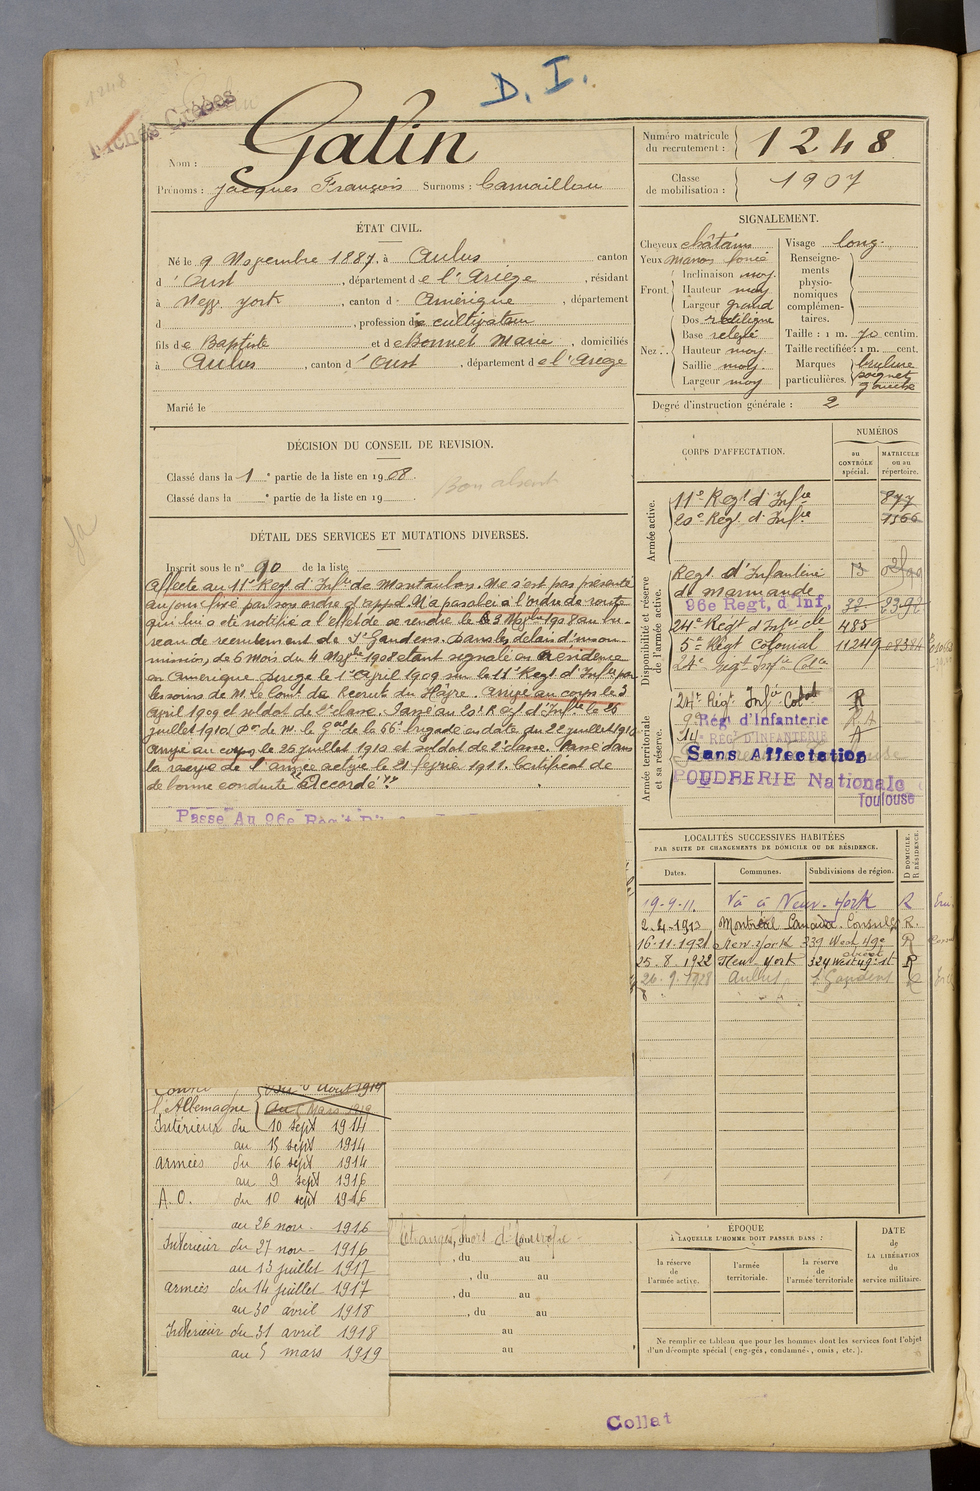 D. I.
Fichés Croisés
Nom : Galin
Prénoms : Jacques François Surnoms : Camaillou
Numéro matricule du recrutement : 1248
Classe de mobilisation : 1907
ÉTAT CIVIL.
Né le 9 Novembre 1887, à Aulus canton
d'Oust, département de l'Ariège, résidant
à New York, canton d Amérique, département
d , profession de cultivateur
fils de Baptiste et de Bonnet Marie, domiciliés
à Aulus, canton d'Oust, département de l'Ariège
Marié le
SIGNALEMENT.
Cheveux châtains
Yeux marron foncé
Front. Inclinaison moy.
Hauteur moy
Largeur grand
Nez. Dos rectiligne
Base relevé
Hauteur moy.
Saillie moy.
Largeur moy
Visage long.
Renseignements physionomiques complémentaires.
Taille : 1 m. 70 centim.
Taille rectifiée : 1 m. cent.
Marques particulières. brulure poignet gauche
Degré d'instruction générale : 2
DÉCISION DU CONSEIL DE REVISION.
Classé dans la 1e partie de la liste en 1908.
Classé dans la e partie de la liste en 19
Bon absent
DÉTAIL DES SERVICES ET MUTATIONS DIVERSES.
Inscrit sous le n° 90 de la liste
Affecté au 11e Regt d'Infie de Montauban. Ne s'est pas présenté
au jour fixé par son ordre d'appel. N'a pas obéi à l'ordre de route
qui lui a été notifié à l'effet de se rendre le 3 Novbre 1908 au bu-
reau de recrutement de St Gaudens. Dans les délais d'insou-
mission, de 6 mois du 4 Novbre 1908 étant signalé en Résidence
en Amérique. Dirigé le 1er Avril 1909 sur le 11e Regt d'Infie par
les soins de M. le Comt de Recrut du Havre. Arrivé au corps le 3
Avril 1909 et soldat de 2e classe. Passé au 20e Regt d'Infie le 26
juillet 1910 (Don de M. le Gal de la 66e brigade en date du 22 juillet 1910
Arrivé au corps le 26 juillet 1910 et soldat de 2e classe. Passé dans
la réserve de l'armée active le 21 février 1911. Certificat de
de bonne conduite "Accordé".
Passé Au 96e Rég't D'Inf
CORPS D'AFFECTATION.
NUMÉROS
au CONTRÔLE spécial.
MATRICULE ou au répertoire.
Armée active.
11e Regt d'Infie 877
20e Regt d'Infie 1366
Disponibilité et réserve de l'armée active.
Regt d'Infanterie
de Marmande
96e Regt, d'Inf,
24e Regt d'Infie Cle 485
5e Regt Colonial 11249
24e Regt Infie Cle
Armée territoriale et sa réserve.
24e Régt Infie Colole R
9e Rég' d'Infanterie RA
14e REGt D'INFANTERIE A
Sans Affectation
POUDRERIE Nationale
Toulouse
LOCALITÉS SUCCESSIVES HABITÉES
PAR SUITE DE CHANGEMENTS DE DOMICILE OU DE RÉSIDENCE.
Dates. Communes. Subdivisions de région. D DOMICILE. R RÉSIDENCE.
19-9-11. Va à New-York R
2-4-1913 Montréal Canada. Consulat R.
16-11-1921 New-York 339 West 49e street R
25.8.1922 New York 324 West 49e st R
26.9.1928 Aulus St Gaudens R
Contre
l'Allemagne
du Aout 1914
Au 5 Mars 1919
Intérieur du 10 sept 1914
au 15 sept 1914
armées du 16 sept 1914
au 9 sept 1916
A.O. du 10 sept 1916
au 26 nov. 1916
Intérieur du 27 nov- 1916
au 13 juillet 1917
armées du 14 juillet 1917
au 30 avril 1918
Intérieur du 31 avril 1918
au 5 mars 1919
l'étranger, hors d'Europe
, du au
, du au
, du au
, du au
au
au
ÉPOQUE
À LAQUELLE L'HOMME DOIT PASSER DANS :
la réserve de l'armée active.
l'armée territoriale.
la réserve de l'armée territoriale
DATE de LA LIBÉRATION du service militaire.
Ne remplir ce tableau que pour les hommes dont les services font l'objet
d'un décompte spécial (engagés, condamnés, omis, etc.).
Collat